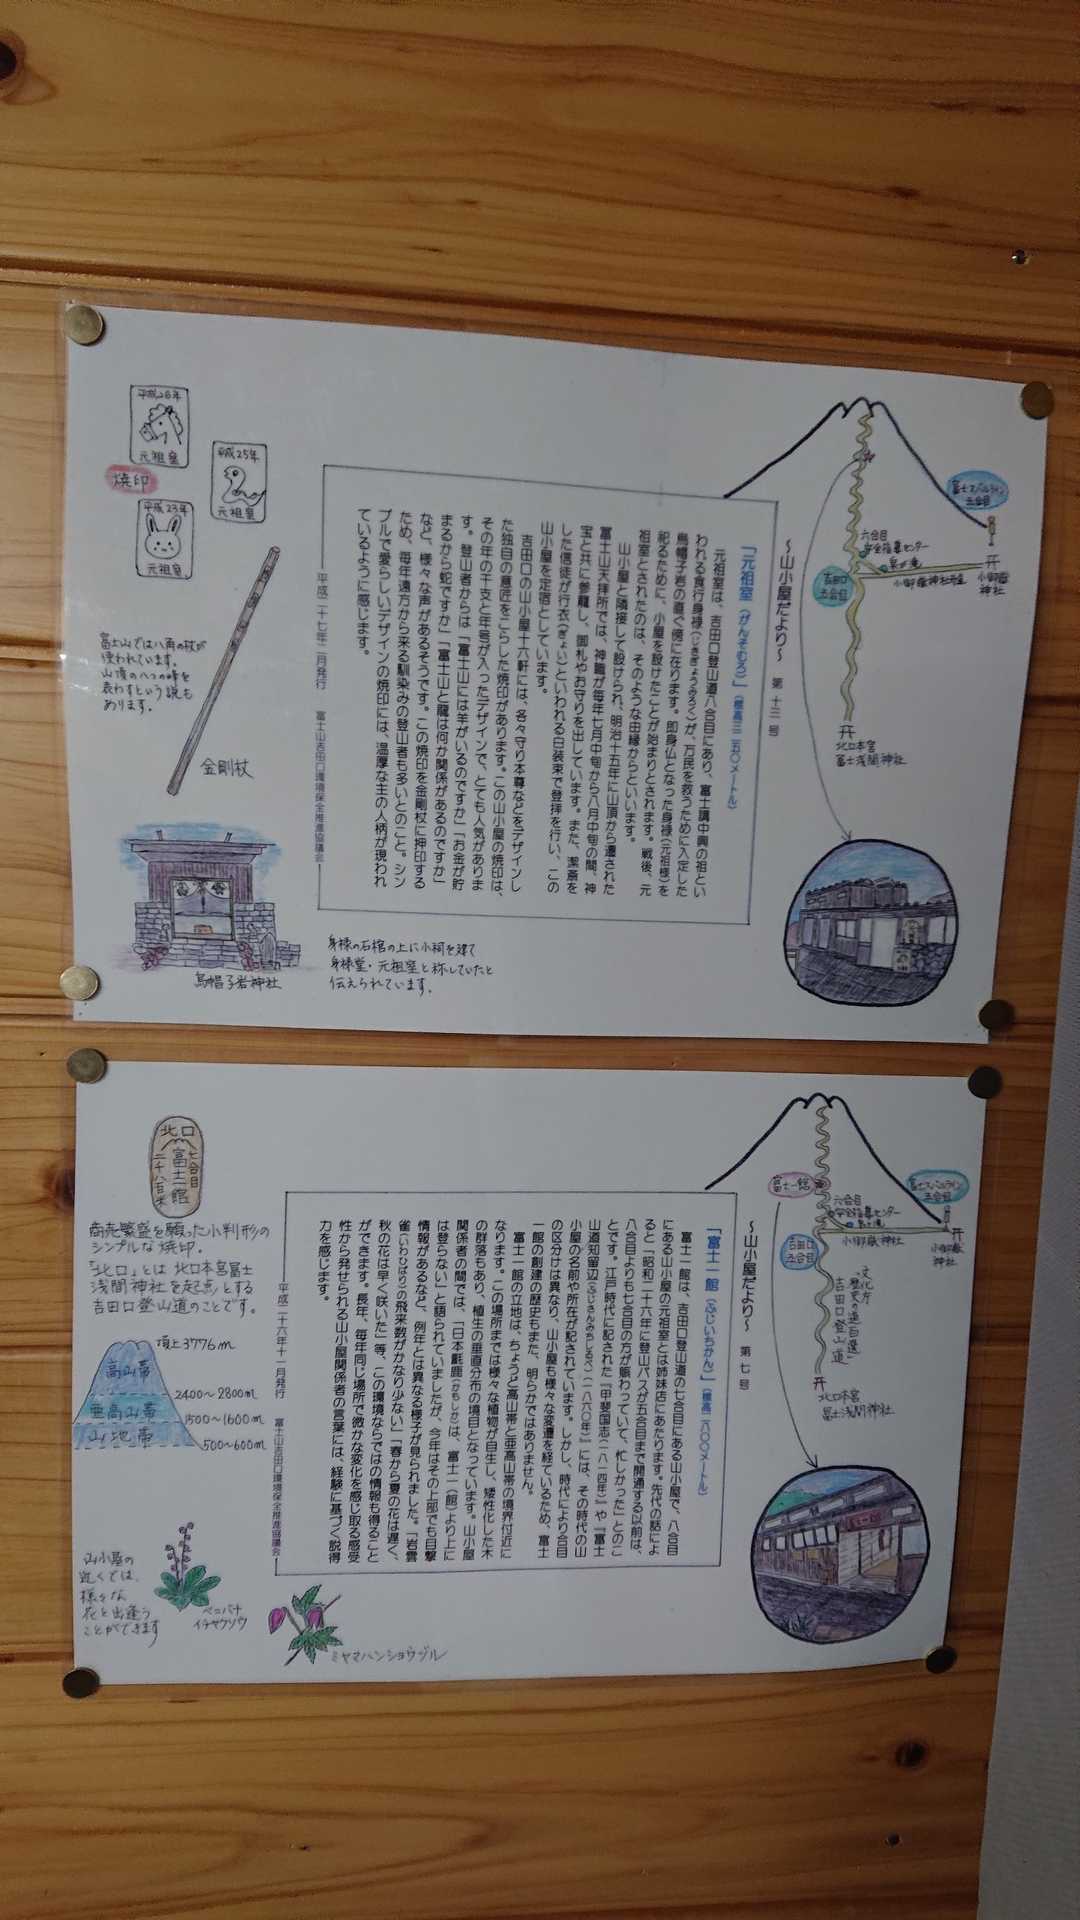 ～山小屋だより～　第十三号
「元祖室（がんそむろ）」（標高三二五〇メートル）
元祖室は、吉田口登山道八合目にあり、富士講中興の祖とい
われる食行身禄（じきぎょうみろく）が、万民を救うために入定した
烏帽子岩の直ぐ傍に在ります。即身仏となった身禄（元祖様）を
祀るために、小屋を設けたことが始まりとされます。戦後、元
祖室とされたのは、そのような由縁からといいます。
山小屋と隣接して設けられ、明治十五年に山頂から遷された
富士山天拝所では、神職が毎年七月中旬から八月中旬の間、神
宝と共に参籠し、御札やお守りを出しています。また、潔斎を
した信徒が行衣（ぎょい）といわれる白装束で登拝を行い、この
山小屋を定宿としています。
吉田口の山小屋十六軒には、各々守り本尊などをデザインし
た独自の意匠をこらした焼印があります。この山小屋の焼印は、
その年の干支と年号が入ったデザインで、とても人気がありま
す。登山者からは「富士山には羊がいるのですか」「お金が貯
まるから蛇ですか」「富士山と龍は何か関係があるのですか」
など、様々な声があるそうです。この焼印を金剛杖に押印する
ため、毎年遠方から来る馴染みの登山者も多いとのこと。シン
プルで愛らしいデザインの焼印には、温厚な主の人柄が現われ
ているように感じます。
平成二十七年二月発行　富士山吉田口環境保全推進協議会
富士スバルライン
五合目
六合目
安全指導センター
泉ヶ滝
小御嶽神社
小御嶽
神社
吉田口
五合目
北口本宮
冨士浅間神社
平成26年
元祖室
平成25年
元祖室
焼印
平成23年
元祖室
富士山では八角の杖が
使われています。
山頂の八つの峰を
表わすという説も
あります。
金剛杖
烏帽子岩神社
身禄の石棺の上に小祠を建て
身禄堂・元祖室と称していたと
伝えられています。
～山小屋だより～　第七号
「富士一館（ふじいちかん）」（標高二八〇〇メートル）
富士一館は、吉田口登山道の七合目にある山小屋で、八合目
にある山小屋の元祖室とは姉妹店にあたります。先代の話によ
ると「昭和二十六年に登山バスが五合目まで開通する以前は、
八合目よりも七合目の方が賑わっていて、忙しかった」とのこ
とです。江戸時代に記された『甲斐国志（一八一四年）』や『富士
山道知留辺（ふじさんみちしるべ）（一八六〇年）』には、その時代の山
小屋の名前や所在が記されています。しかし、時代により合目
の区分けは異なり、山小屋も様々な変遷を経ているため、富士
一館の創建の歴史もまた、明らかではありません。
富士一館の立地は、ちょうど高山帯と亜高山帯の境界付近に
なります。この場所までは様々な植物が自生し、矮性化した木
の群落もあり、植生の垂直分布の境目となっています。山小屋
関係者の間では、「日本氈鹿（かもしか）は、富士一（館）より上に
は登らない」と語られていましたが、今年はその上部でも目撃
情報があるなど、例年とは異なる様子が見られました。「岩雲
雀（いわひばり）の飛来数がかなり少ない」「春から夏の花は遅く、
秋の花は早く咲いた」等、この環境ならではの情報も得ること
ができます。長年、毎年同じ場所で微かな変化を感じ取る感受
性から発せられる山小屋関係者の言葉には、経験に基づく説得
力を感じます。
平成二十六年十一月発行　富士山吉田口環境保全推進協議会
富士一館
富士スバルライン
五合目
六合目
安全指導センター
泉ヶ滝
小御嶽神社
小御嶽
神社
吉田口
五合目
文化庁
"歴史の道百選"
吉田口登山道
北口本宮
冨士浅間神社
北口
七合目
富士一館
二千八百米
商売繁盛を願った小判形の
シンプルな焼印。
「北口」とは北口本宮冨士
浅間神社を起点とする
吉田口登山道のことです。
頂上3776m
高山帯
2400～2800m
亜高山帯
1500～1600m
山地帯
500～600m
山小屋の
近くでは、
様々な
花と出逢う
ことができます
ベニバナ
イチヤクソウ
ミヤマハンショウヅル